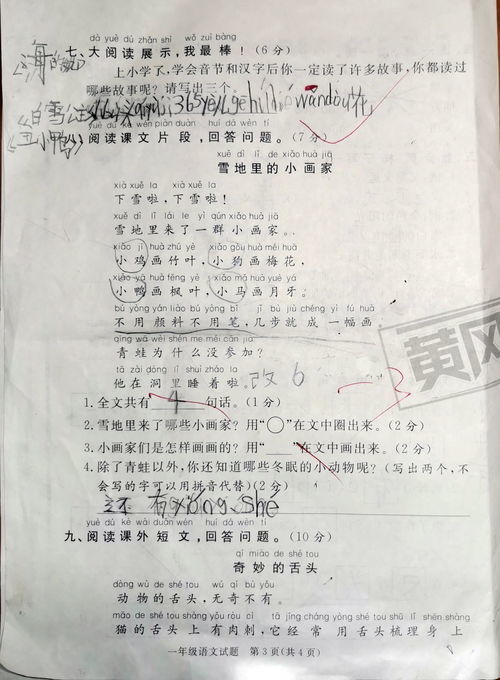 dà yuè dú zhǎn shì wǒ zuì bàng
七、大阅读展示，我最棒！（6分）
上小学了，学会音节和汉字后你一定读了许多故事，你都读过
哪些故事呢？请写出三个。
《海的
《白雪公主
《丑小鸭》
yuè dú kè wén piàn duàn huí dá wèn tí
八、阅读课文片段，回答问题。（7分）
xuě dì lǐ de xiǎo huà jiā
雪地里的小画家
xià xuě la xià xuě la
下雪啦，下雪啦！
xuě dì lǐ lái le yì qún xiǎo huà jiā
雪地里来了一群小画家。
xiǎo jī huà zhú yè xiǎo gǒu huà méi huā
小鸡画竹叶，小狗画梅花，
xiǎo yā huà fēng yè xiǎo mǎ huà yuè yá
小鸭画枫叶，小马画月牙。
bú yòng yán liào bú yòng bǐ jǐ bù jiù chéng yì fú huà
不用颜料不用笔，几步就成一幅画
qīng wā wèi shén me méi cān jiā
青蛙为什么没参加？
tā zài dòng lǐ shuì zháo la
他在洞里睡着啦。 改 6
-3
1.全文共有 4 句话。（1分）
2.雪地里来了哪些小画家？用“○”在文中圈出来。（2分）
3.小画家们是怎样画画的？用“__”在文中画出来。（2分）
4.除了青蛙以外，你还知道哪些冬眠的小动物呢？（写出两个，不
会写的字可以用拼音代替）（2分）
还有xióng、shé
yuè dú kè wài duǎn wén huí dá wèn tí
九、阅读课外短文，回答问题。（10分）
qí miào de shé tou
奇妙的舌头
dòng wù de shé tou wú qí bù yǒu
动物的舌头，无奇不有。
māo de shé tou shàng yǒu ròu cì tā jīng cháng yòng shé tou shū lǐ shēn shàng
猫的舌头上有肉刺，它经常用舌头梳理身上
一年级语文试题 第3页（共4页）
黄冈